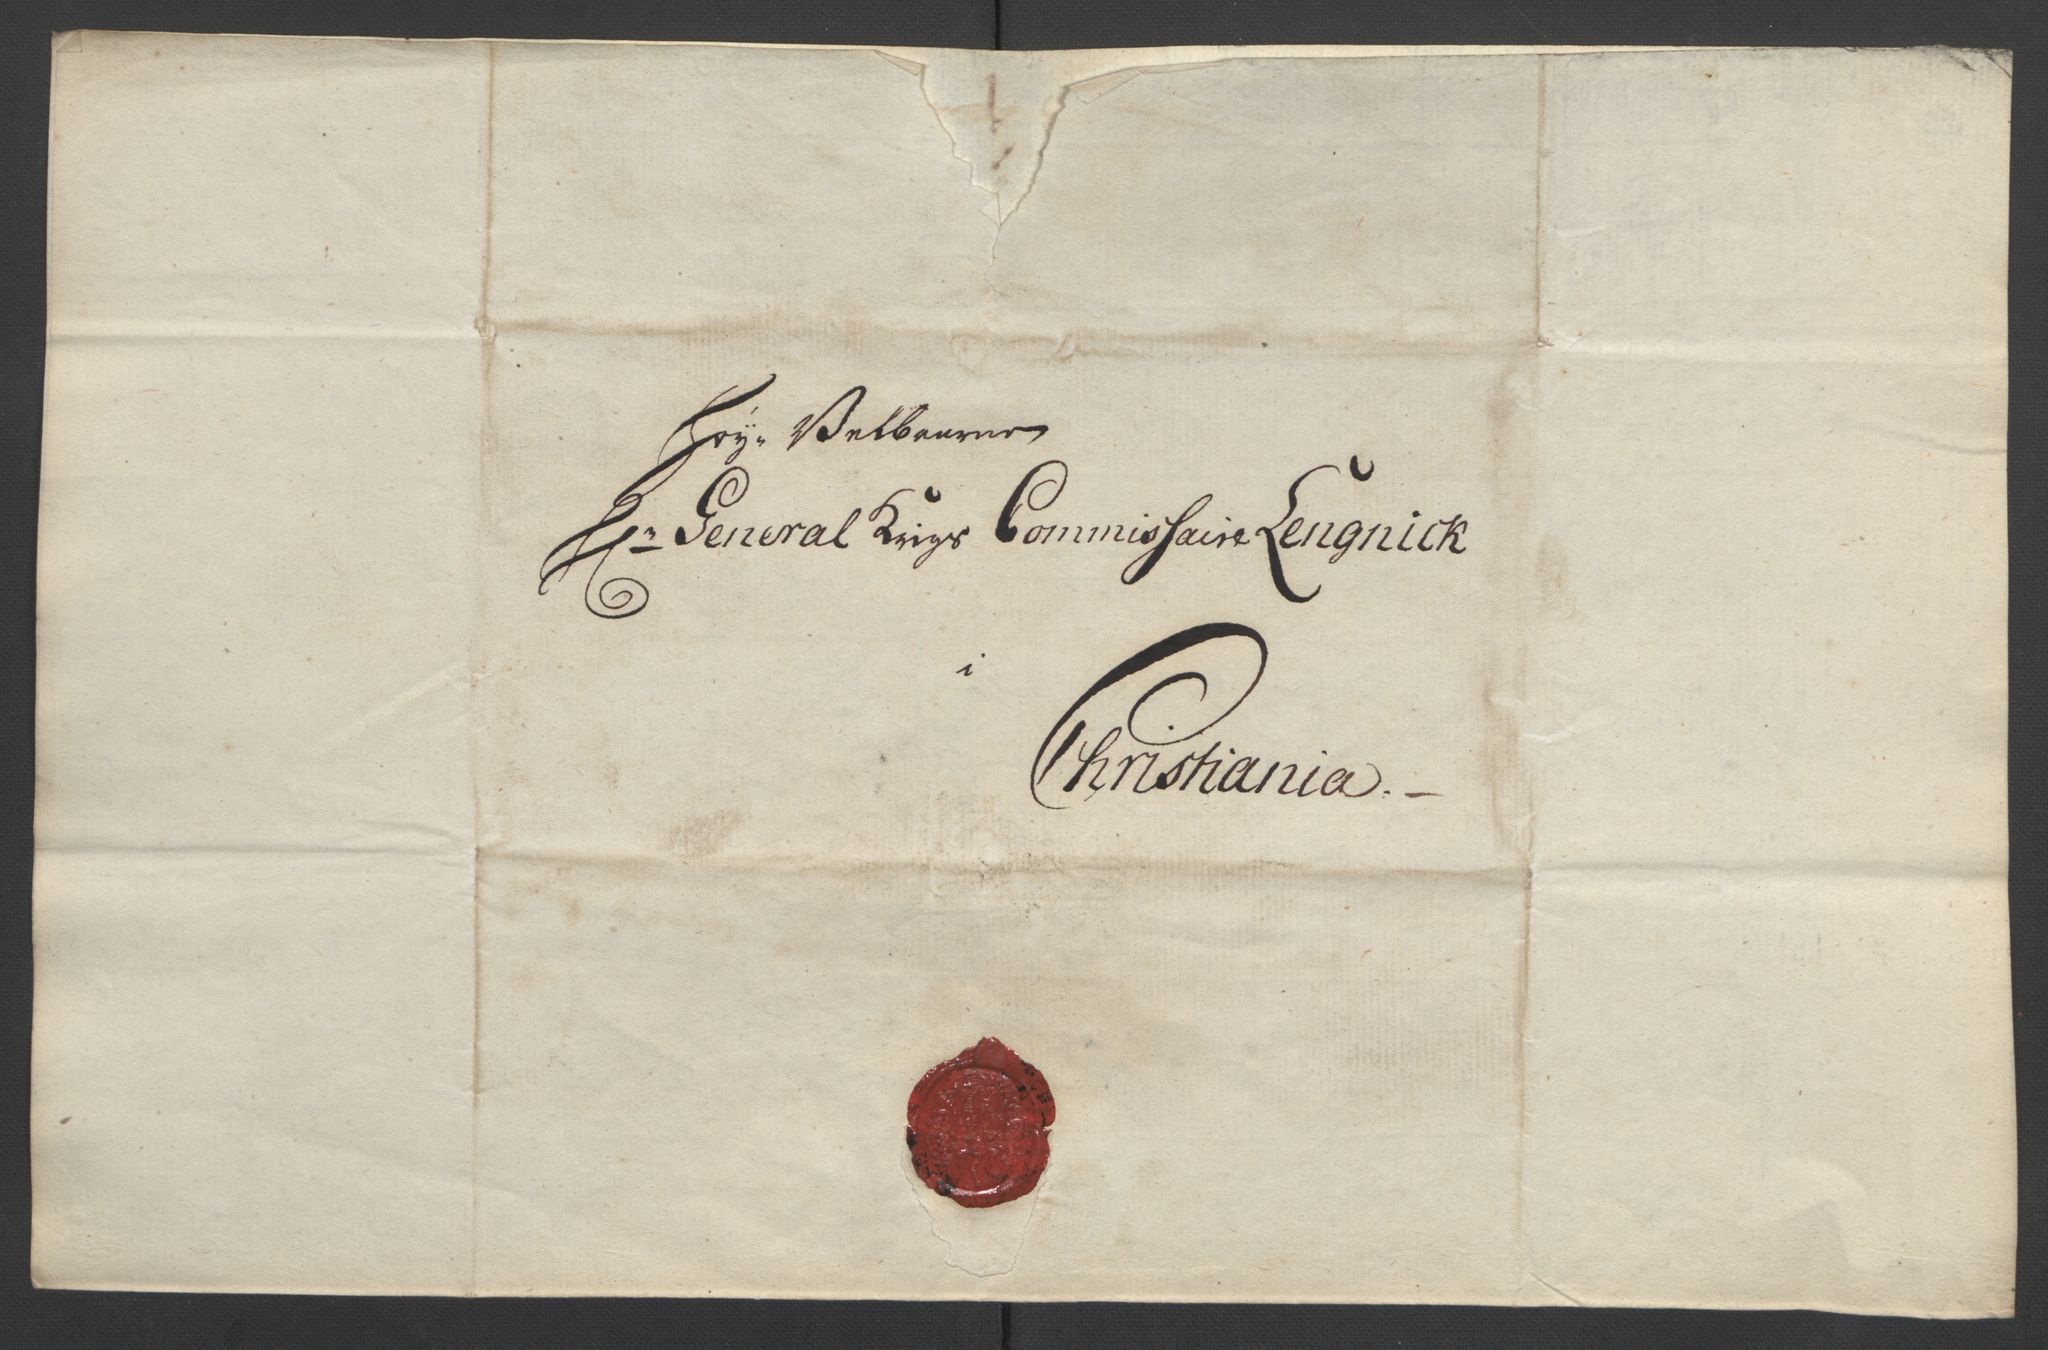 Høy- Velbaarne
Hr General Krigs Commissaire Lengnick
i
Christiania.-